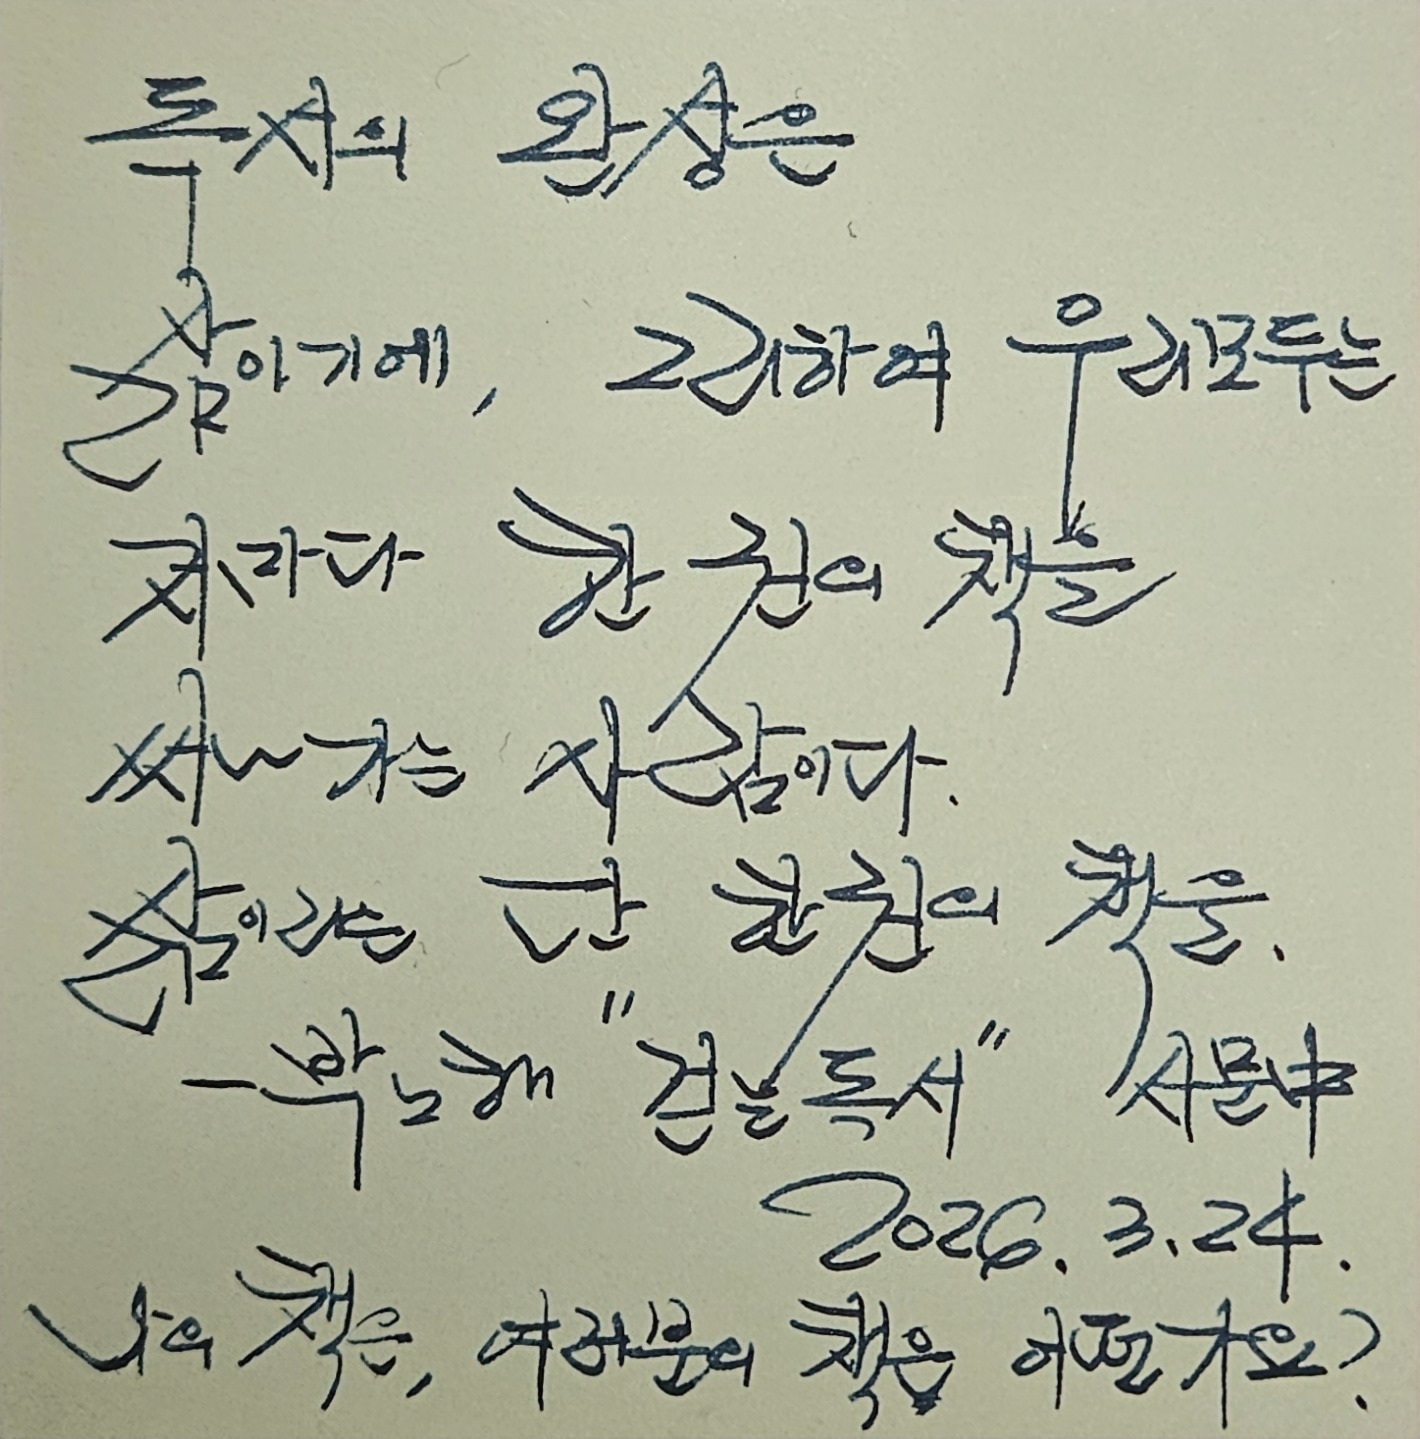 독서의 완성은
삶이기에, 그리하여 우리 모두는
저마다 한 권의 책을
써나가는 사람이다.
삶이라는 단 한 권의 책을.
- 박노해 "걷는 독서" 서문中
2026. 3. 24.
나의 책은, 여러분의 책은 어떤가요?